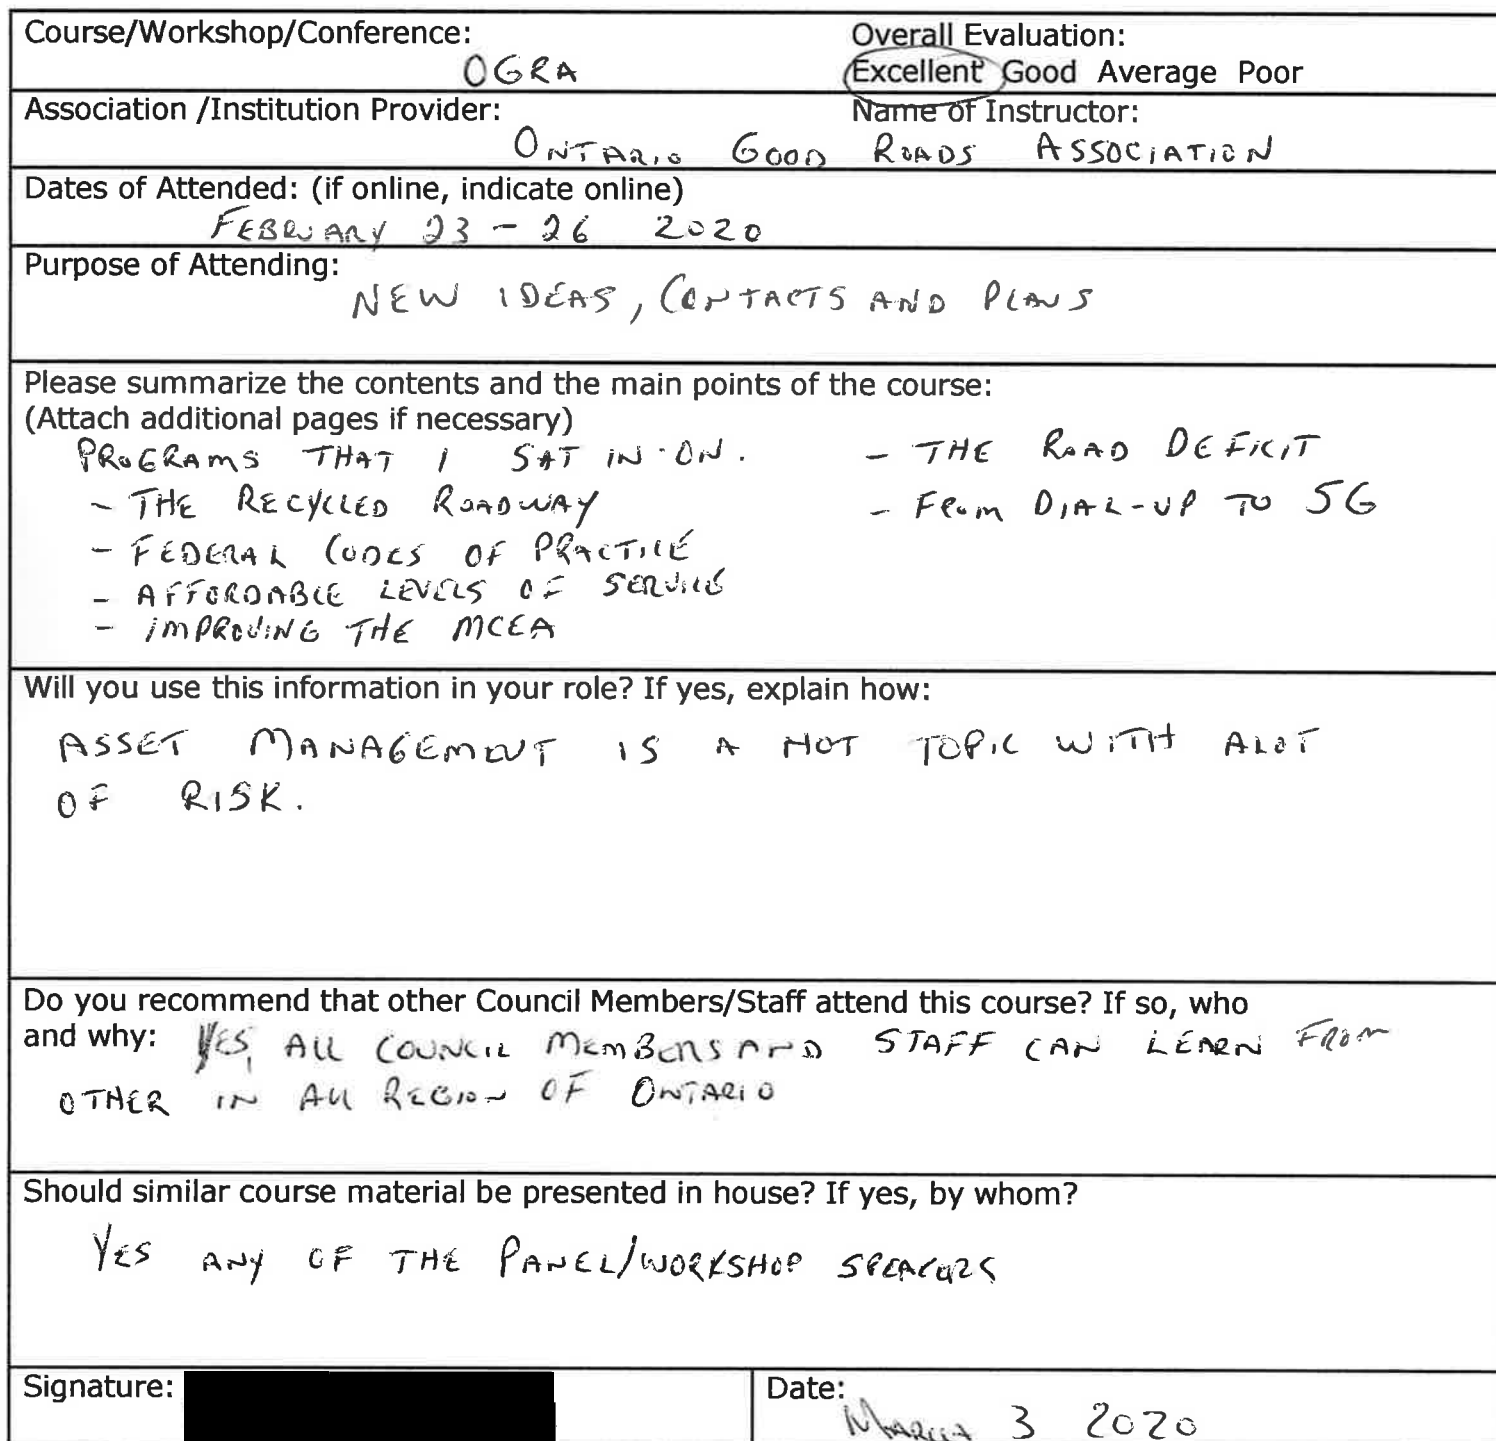 Course/Workshop/Conference:
OGRA
Overall Evaluation:
Excellent Good Average Poor
Association /Institution Provider:
Name of Instructor:
ONTARIO GOOD ROADS ASSOCIATION
Dates of Attended: (if online, indicate online)
FEBRUARY 23 - 26 2020
Purpose of Attending:
NEW IDEAS, CONTACTS AND PLANS
Please summarize the contents and the main points of the course:
(Attach additional pages if necessary)
PROGRAMS THAT I SAT IN ON.
- THE RECYCLED ROADWAY
- FEDERAL CODES OF PRACTICE
- AFFORDABLE LEVELS OF SERVICE
- IMPROVING THE MCEA
- THE ROAD DEFICIT
- FROM DIAL-UP TO 5G
Will you use this information in your role? If yes, explain how:
ASSET MANAGEMENT IS A HOT TOPIC WITH ALOT
OF RISK.
Do you recommend that other Council Members/Staff attend this course? If so, who
and why: YES, ALL COUNCIL MEMBERS AND STAFF CAN LEARN FROM
OTHER IN ALL REGION OF ONTARIO
Should similar course material be presented in house? If yes, by whom?
YES ANY OF THE PANEL/WORKSHOP SPEAKERS
Signature:
Date:
MARCH 3 2020